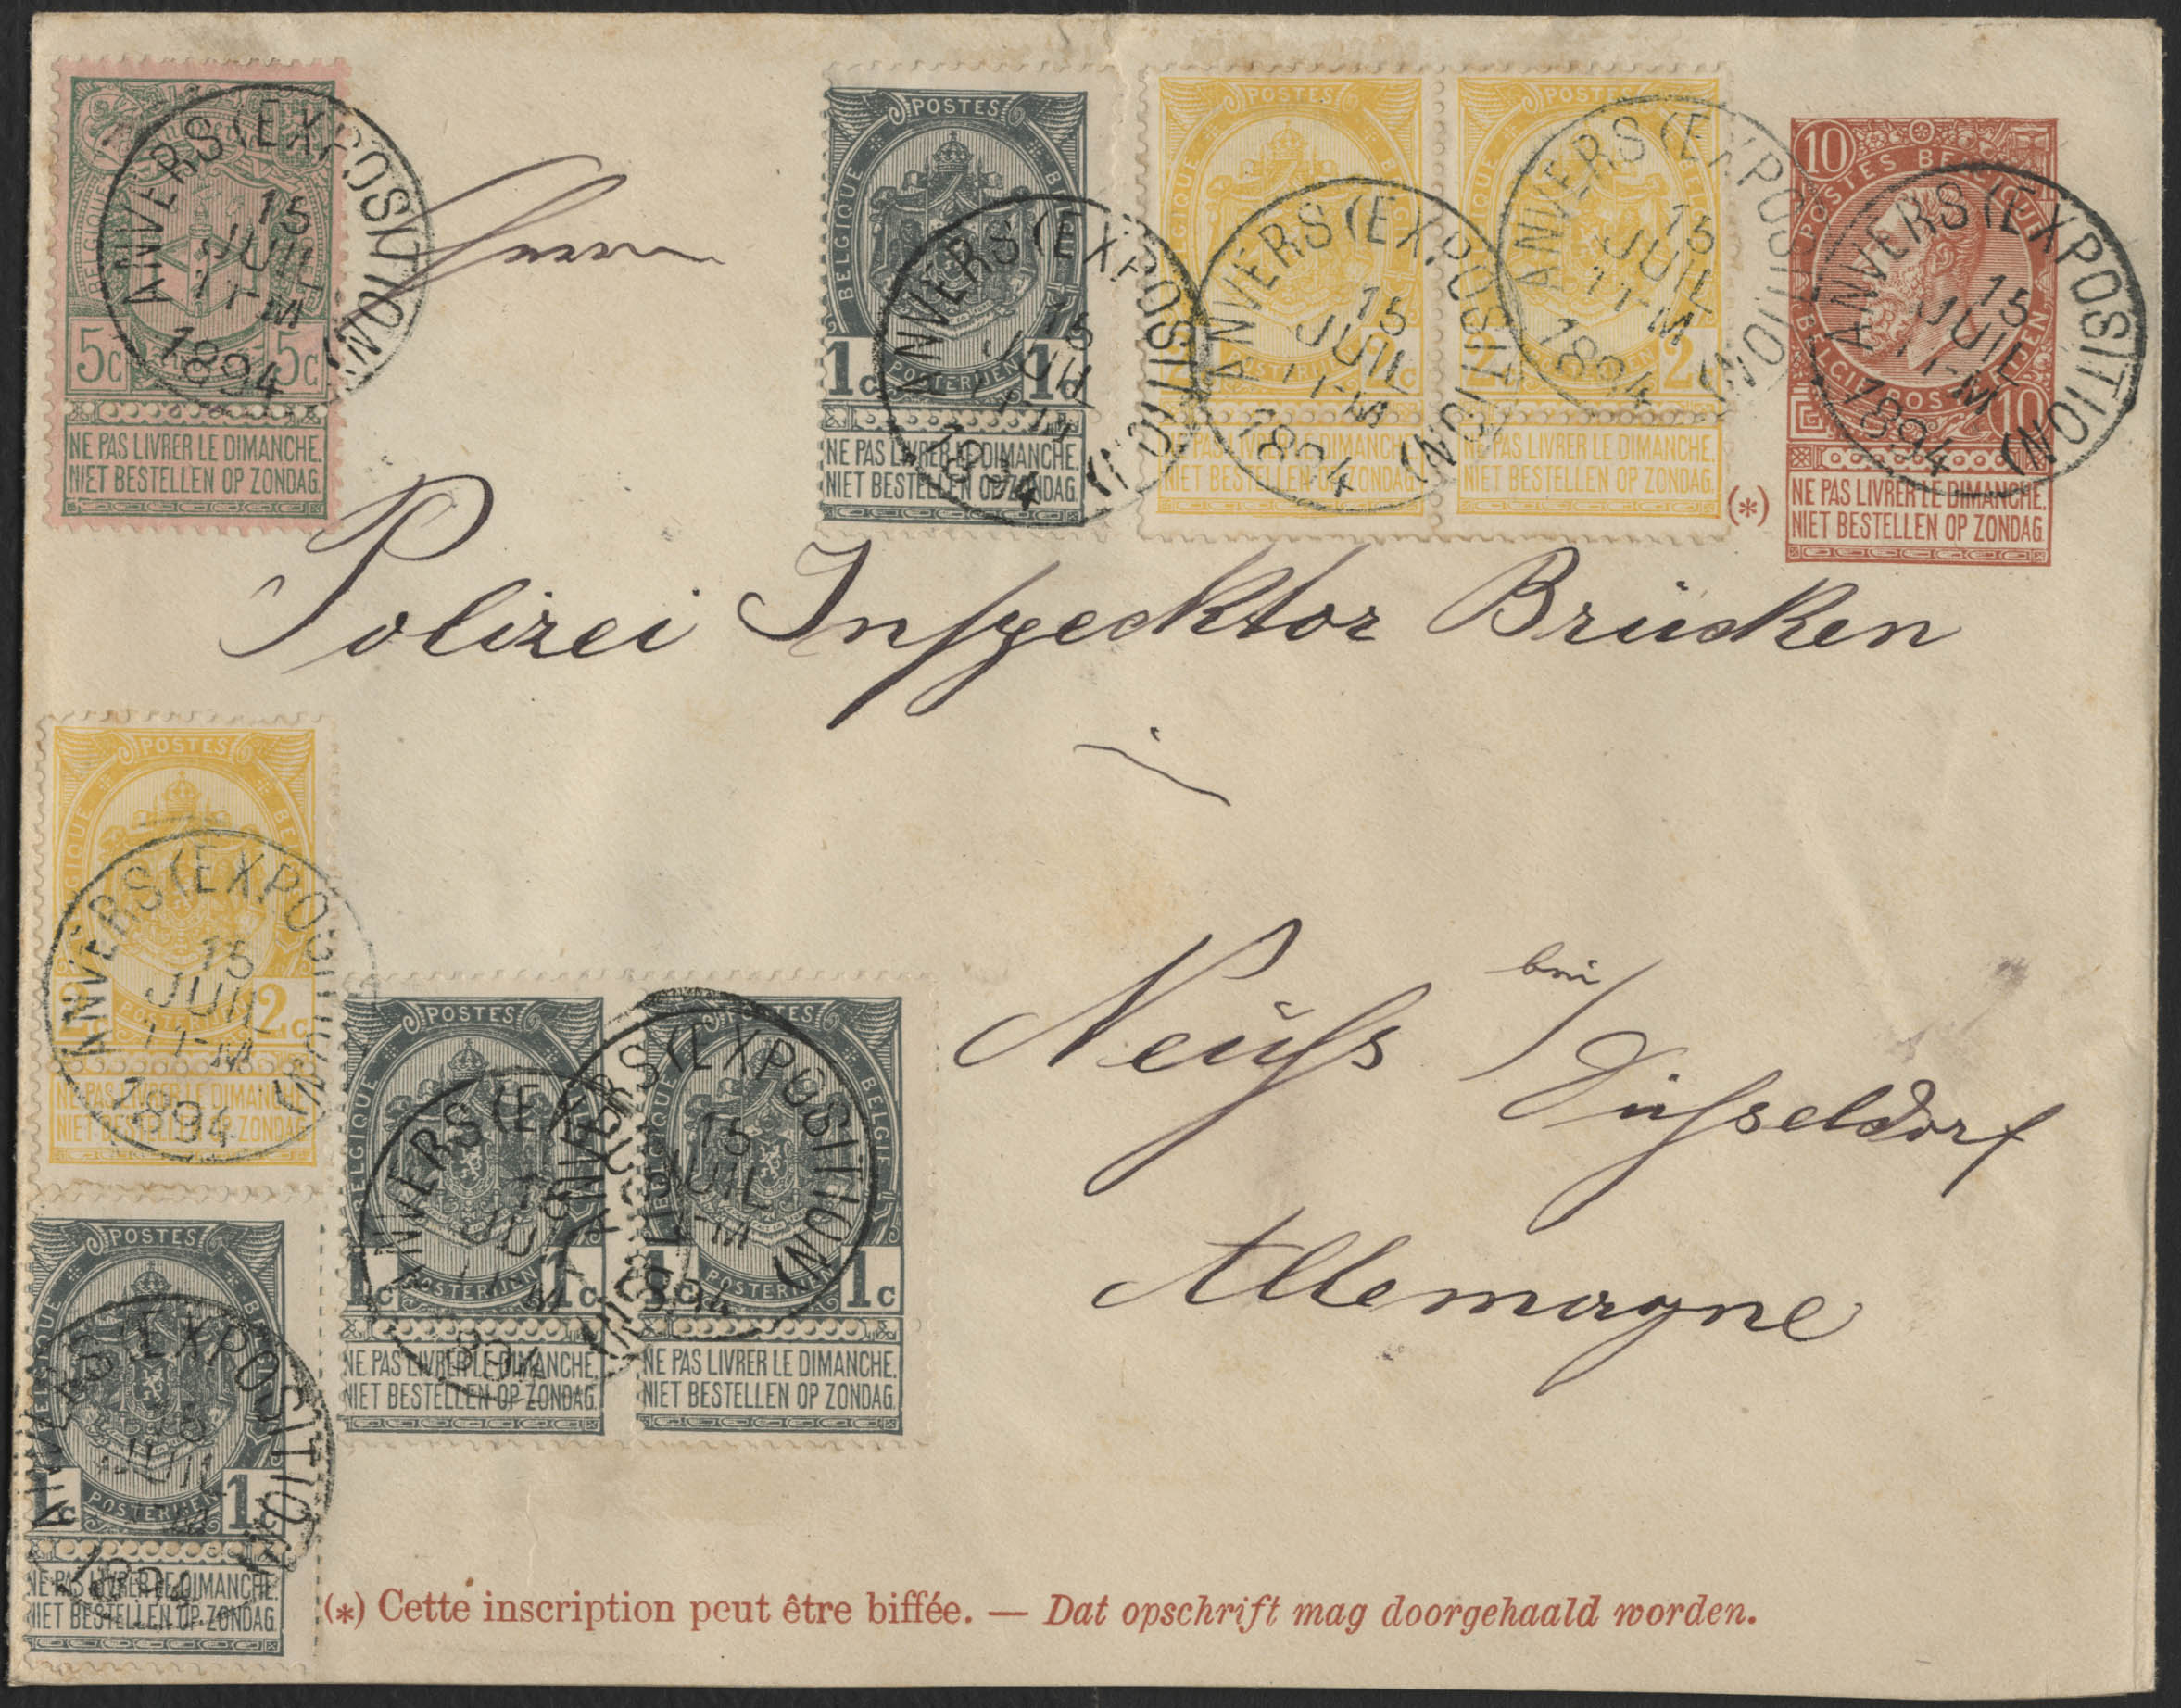 5c 5c
NE PAS LIVRER LE DIMANCHE.
NIET BESTELLEN OP ZONDAG.
ANVERS (EXPOSITION)
15
JUIL
11-M
1894
Herrn
POSTES
BELGIQUE
POSTERIJEN
1c 1c
NE PAS LIVRER LE DIMANCHE.
NIET BESTELLEN OP ZONDAG.
ANVERS (EXPOSITION)
15
JUIL
11-M
1894
POSTES
BELGIQUE
POSTERIJEN
2c 2c
NE PAS LIVRER LE DIMANCHE.
NIET BESTELLEN OP ZONDAG.
ANVERS (EXPOSITION)
15
JUIL
11-M
1894
POSTES
POSTERIJEN
2c 2c
NE PAS LIVRER LE DIMANCHE.
NIET BESTELLEN OP ZONDAG.
ANVERS (EXPOSITION)
15
JUIL
11-M
1894
10
POSTES BELGIQUE
10
(*)
NE PAS LIVRER LE DIMANCHE.
NIET BESTELLEN OP ZONDAG.
ANVERS (EXPOSITION)
15
JUIL
11-M
1894
Polizei Inspecktor Brücken
POSTES
POSTERIJEN
2c 2c
NE PAS LIVRER LE DIMANCHE.
NIET BESTELLEN OP ZONDAG.
ANVERS (EXPOSITION)
15
JUIL
11-M
1894
POSTES
BELGIQUE
POSTERIJEN
1c 1c
NE PAS LIVRER LE DIMANCHE.
NIET BESTELLEN OP ZONDAG.
POSTES
BELGIE
POSTERIJEN
1c 1c
NE PAS LIVRER LE DIMANCHE.
NIET BESTELLEN OP ZONDAG.
ANVERS (EXPOSITION)
15
JUIL
11-M
1894
Neuſs bei/Düſseldorf
Allemagne
POSTES
POSTERIJEN
1c 1c
NE PAS LIVRER LE DIMANCHE.
NIET BESTELLEN OP ZONDAG.
ANVERS (EXPOSITION)
15
JUIL
1894
(*) Cette inscription peut être biffée. — Dat opschrift mag doorgehaald worden.